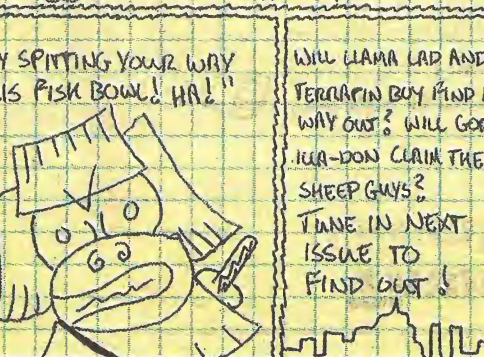 Y SPITTING YOUR WAY
IS FISH BOWL! HA!"
WILL LLAMA LAD AND
TERRAPIN BOY FIND
WAY OUT? WILL GO
ILLA-DON CLAIM THE
SHEEP GUYS?
TUNE IN NEXT
ISSUE TO
FIND OUT!